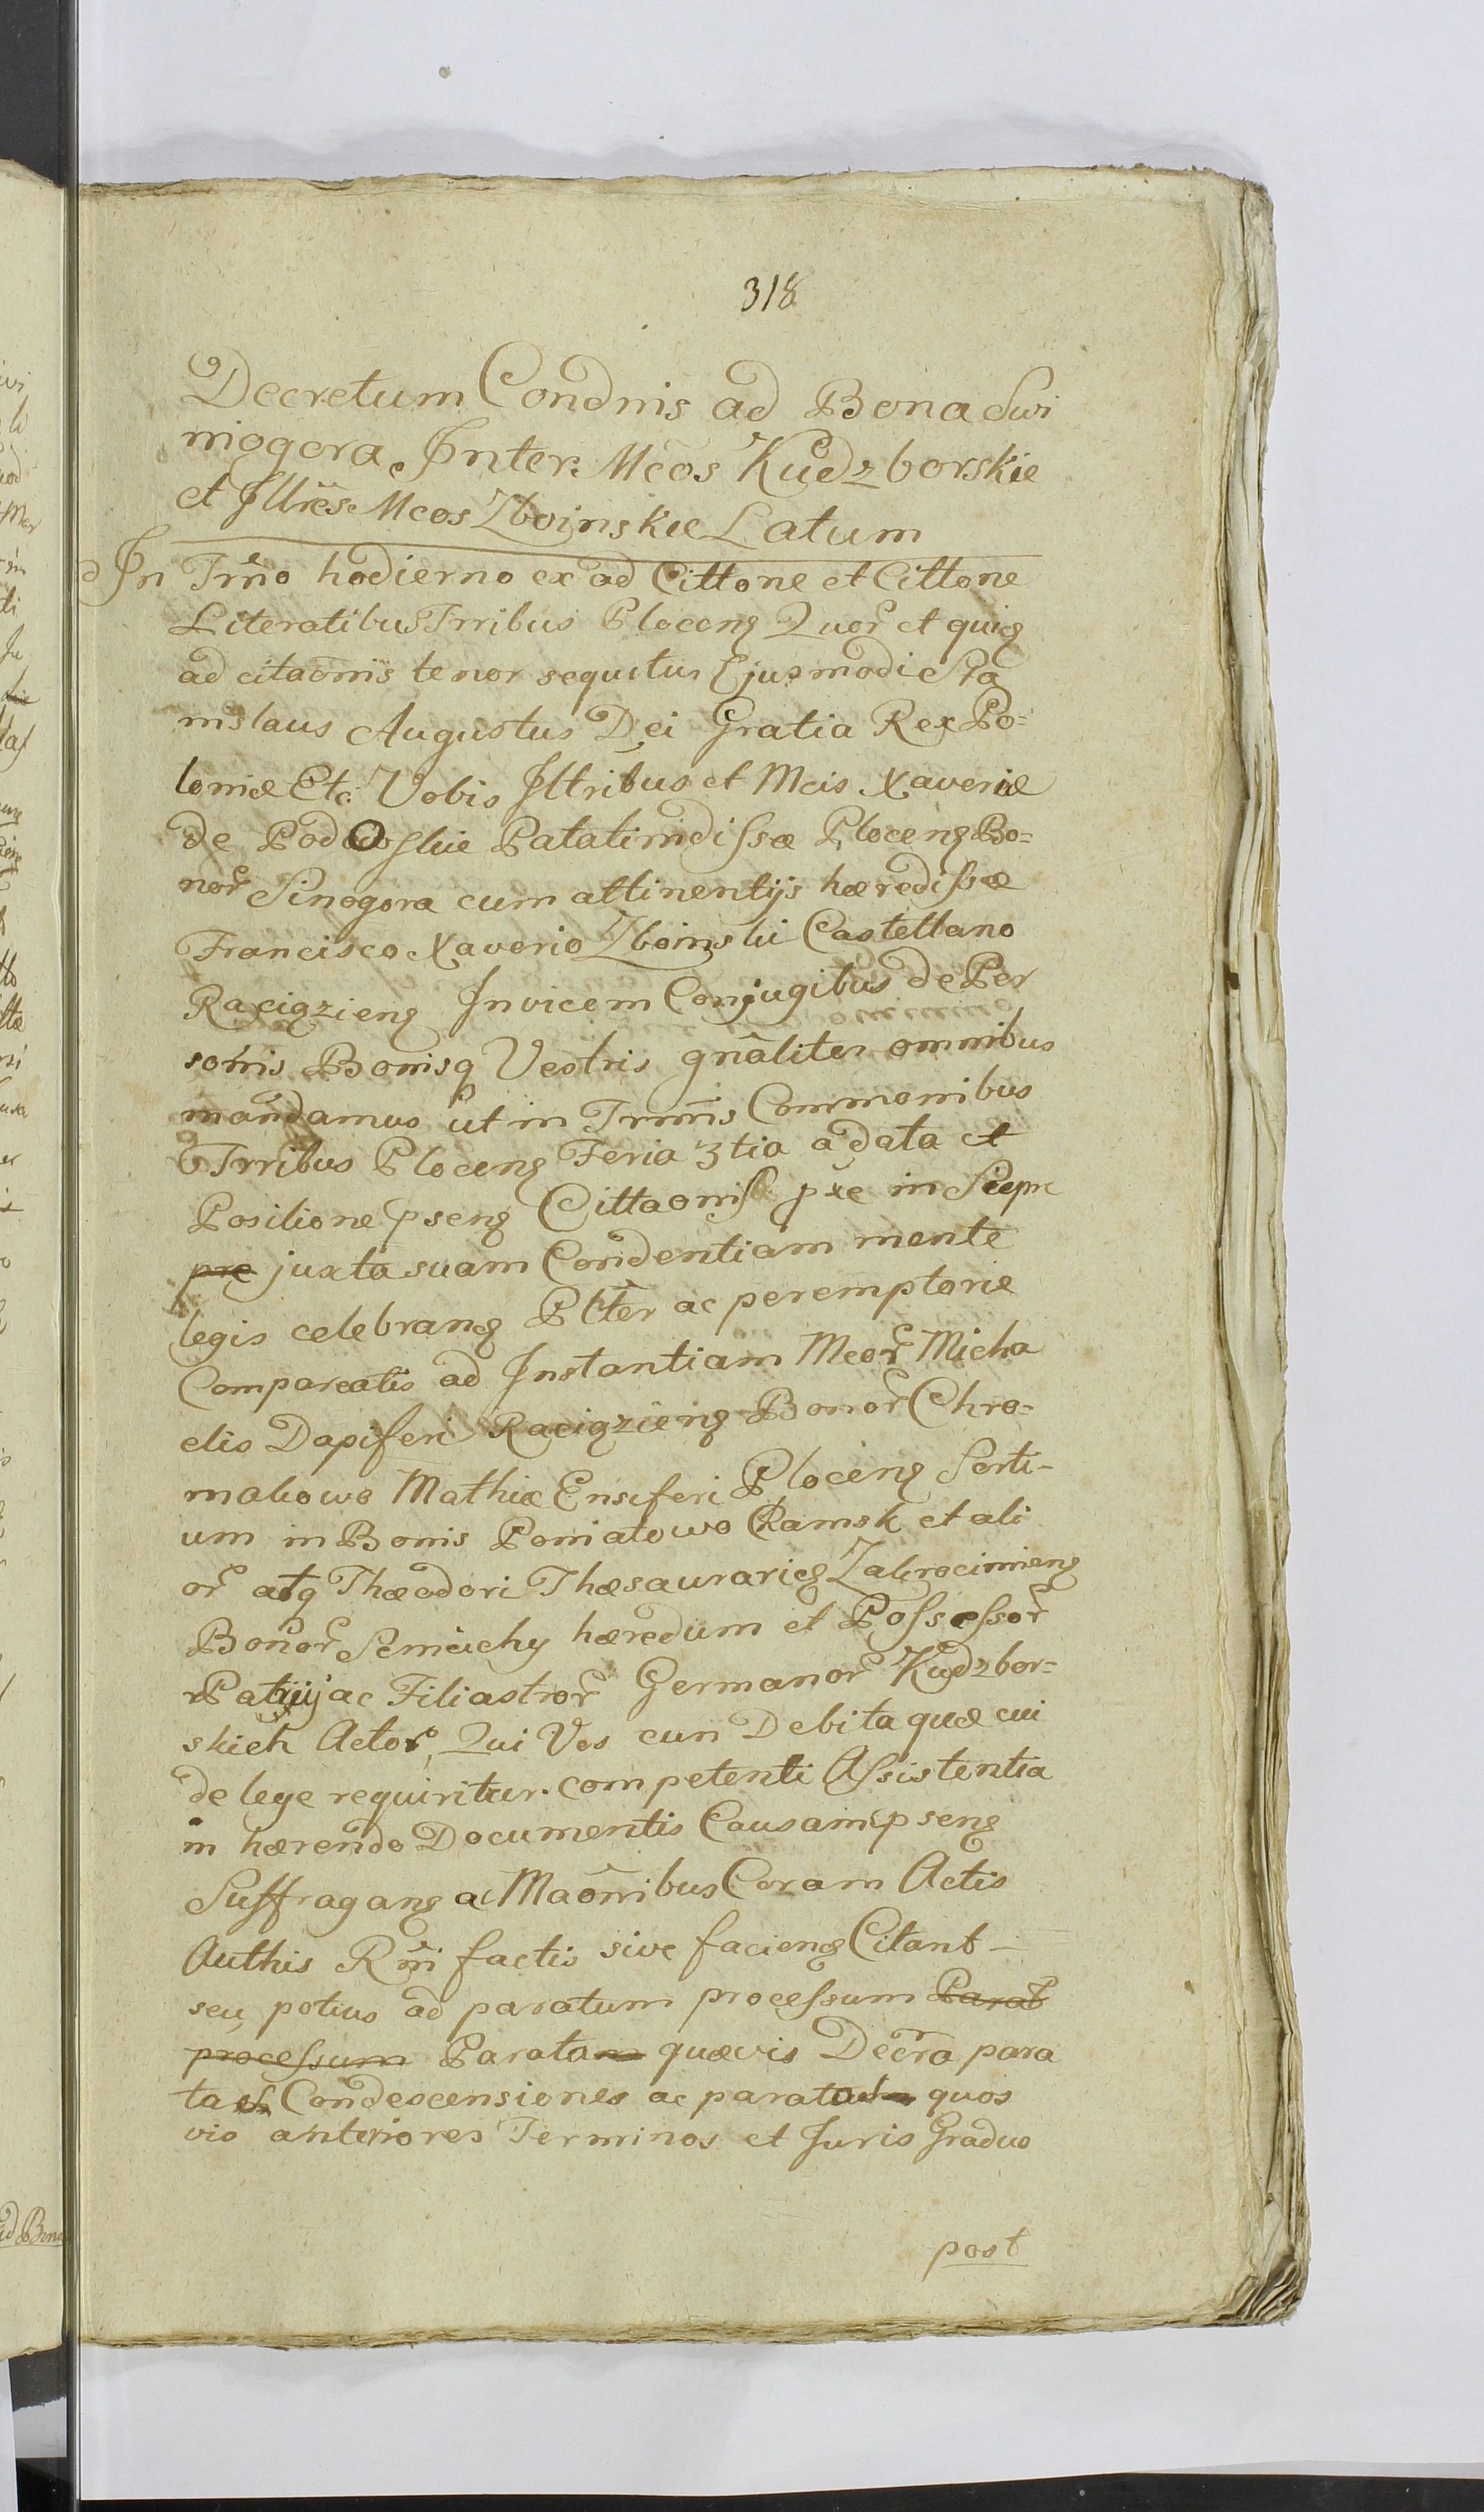 318
Decretum Condnis ad Bona Swi
niogora Inter Mcos Kudzborskie
et Illres Mcos Zboinskie Latum
In Trno hodierno ex ad Cittone et Cittone
Literatibus Trribus Plocens Quor et quis
ad citaonis tenor sequitur Ejusmodi Sta
nislaus Augustus Dei Gratia Rex Po=
loniæ Etc: Vobis Illribus et Mcis Xaveriæ
de Podoskie Palatinidissæ Plocens Bo=
nor Sinogora cum attinentijs hæredissæ
Francisco Xaverio Zboinski Castellano
Raciąziens Invicem Conjugibus de Per
sonis Bonisq Vestris gnaliter omnibus
mandamus ut in Trmis Commonibus
Trribus Plocens Feria 3tia a data et
Positione pseng Cittaonis pxe in Sierpc
pxe juxta suam Condentiam mente
legis celebrang Plter ac peremptorie
Compareatis ad Instantiam Mcor Micha
elis Dapiferi Raciązieng Bonor Chro=
makowo Mathiæ Ensiferi Ploceng Serti-
um in Bonis Poniatowo Ramsk et ali
or atq Thæodori Thæsaurarieg Zakrocimieng
Bonor hæredum et Possessor
Patrij ac Filiastror Germanor Kudzbor=
skich Actor, Qui Vos cun Debita quæ cui
de lege requiritur competenti Assistentia
in hærendo Documentis Causam pseng
Suffragang ac Maonibus Coram Actis
Authis Rni factis sive facieng Citant
seu potius ad paratum processum Parat
processum Parata quævis Decra para
tas Condescensiones ac paratos quos
vis anteriores Terminos et Juris Gradus
post